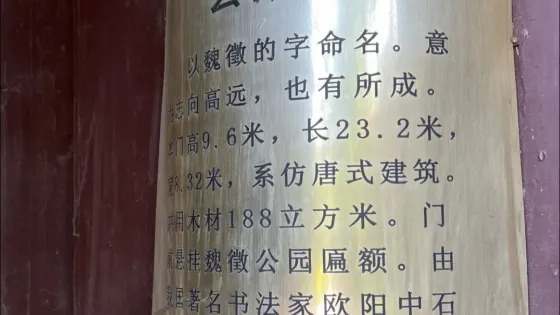 以魏徵的字命名。意
志向高远，也有所成。
门高9.6米，长23.2米，
宽8.32米，系仿唐式建筑。
用木材188立方米。门
悬挂魏徵公园匾额。由
我国著名书法家欧阳中石